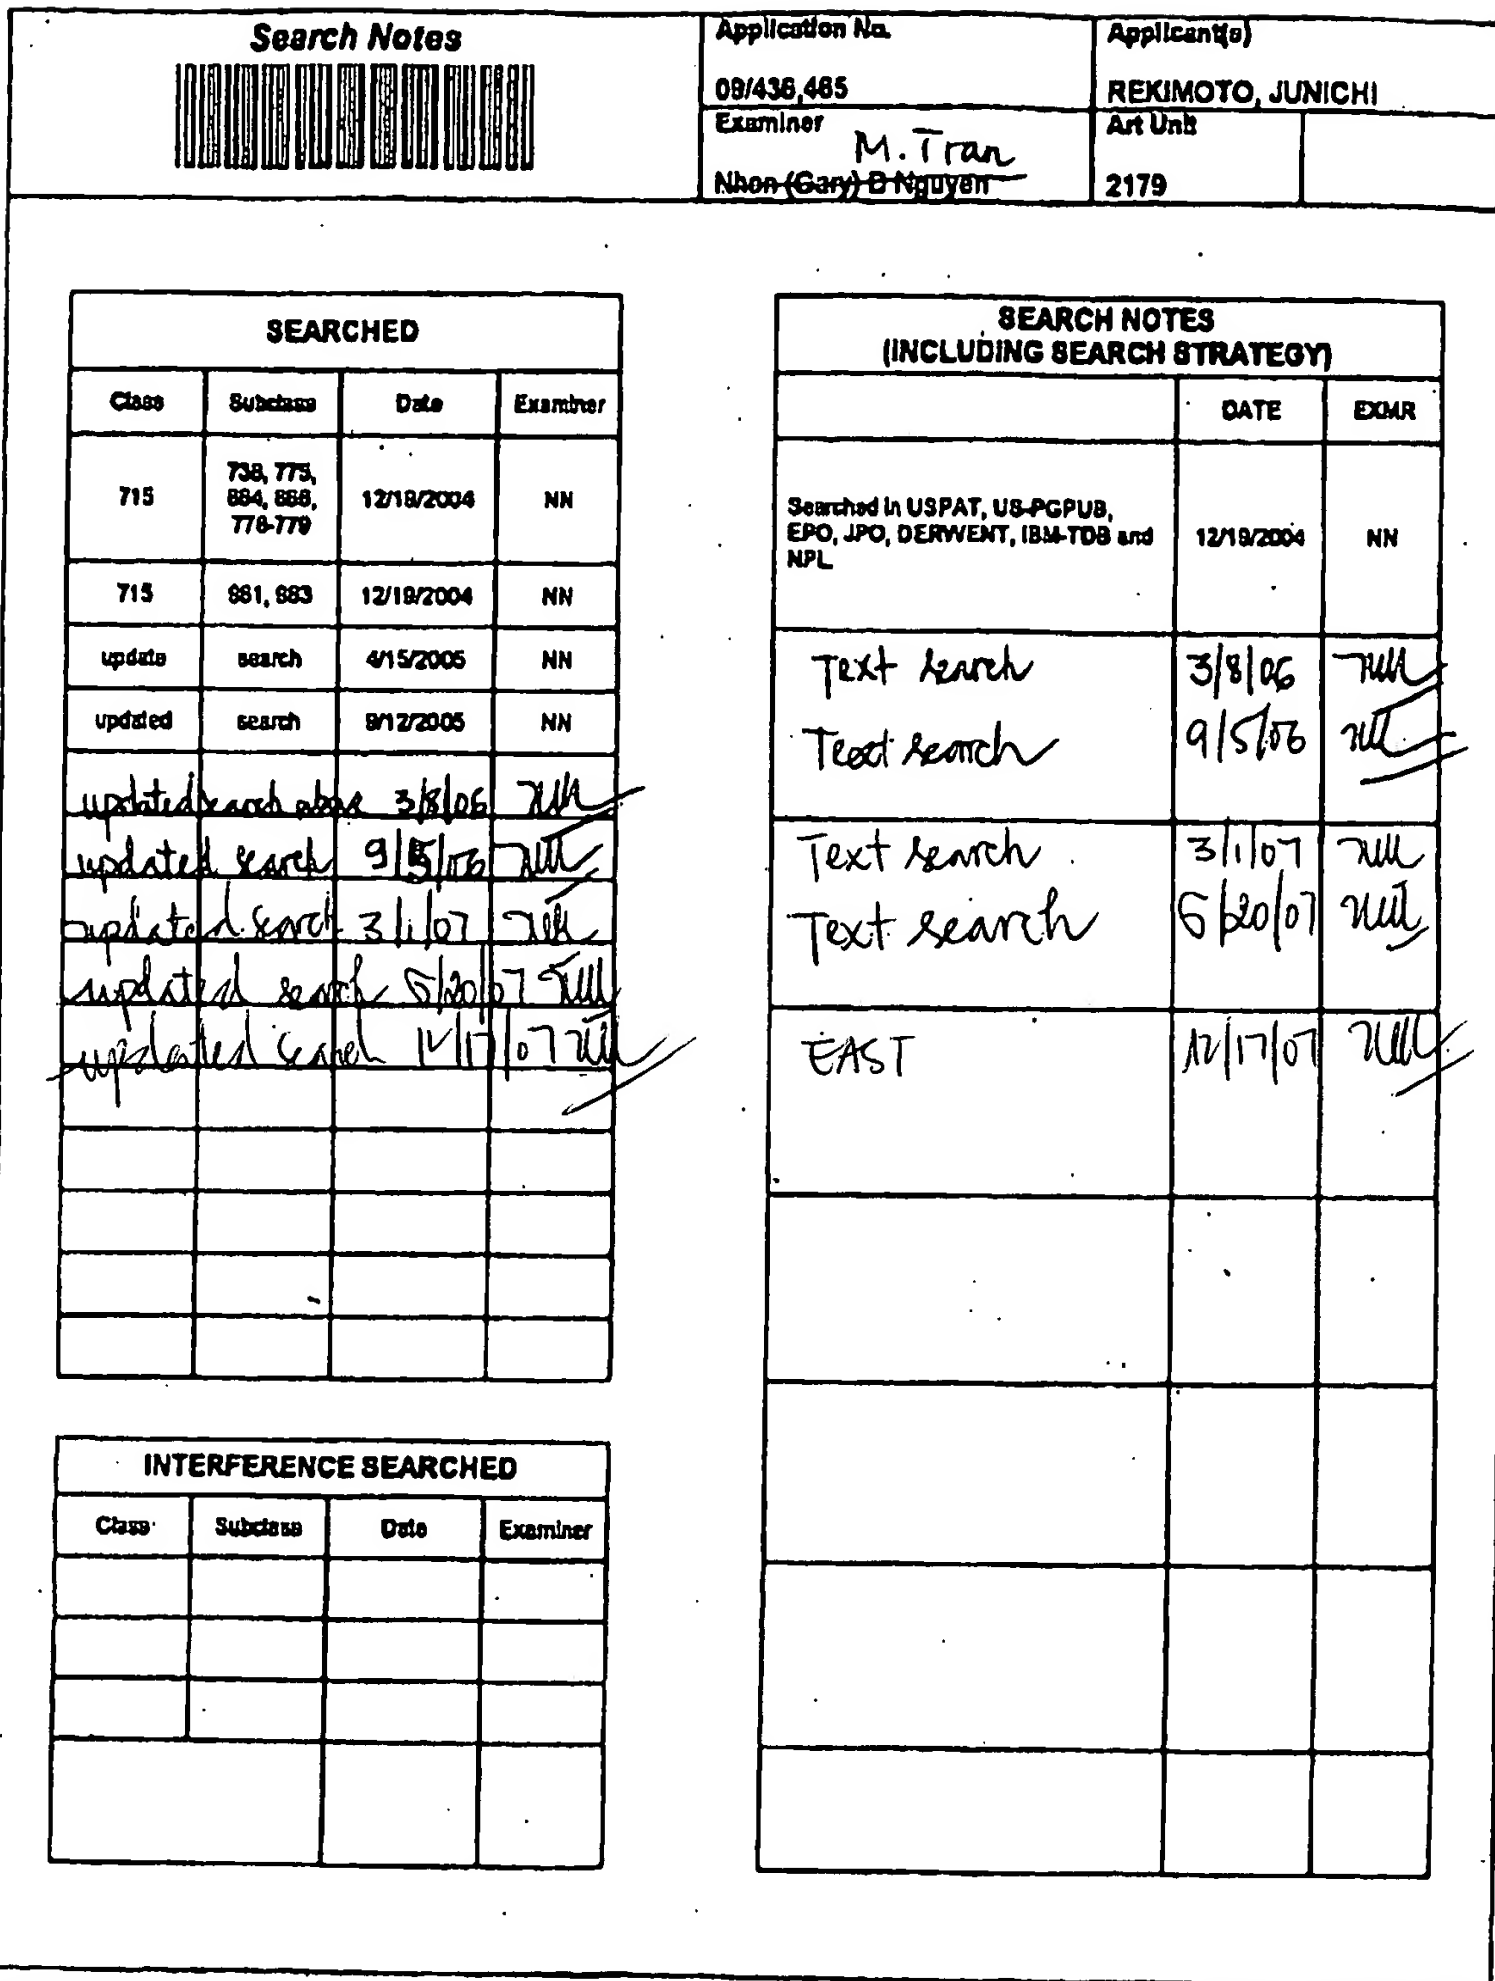 Search Notes
Application No.
09/436,465
Applicant(s)
REKIMOTO, JUNICHI
Examiner
M. Tran
Nhon (Gary) D Nguyen
Art Unit
2179
SEARCHED
Class Subclass Date Examiner
715
738, 775,
864, 866,
778-779
12/19/2004 NN
715 861, 863 12/19/2004 NN
update search 4/15/2005 NN
updated search 9/12/2005 NN
updated search above 3/8/06
updated search 9/5/06
updated search 3/1/07
updated search /20/07
updated search 12/17/07
INTERFERENCE SEARCHED
Class Subclass Date Examiner
SEARCH NOTES
(INCLUDING SEARCH STRATEGY)
DATE EXMR
Searched in USPAT, US-PGPUB,
EPO, JPO, DERWENT, IBM-TDB and
NPL
12/19/2004 NN
Text search 3/8/06
Text search 9/5/06
Text search 3/1/07
Text search /20/07
EAST 12/17/07